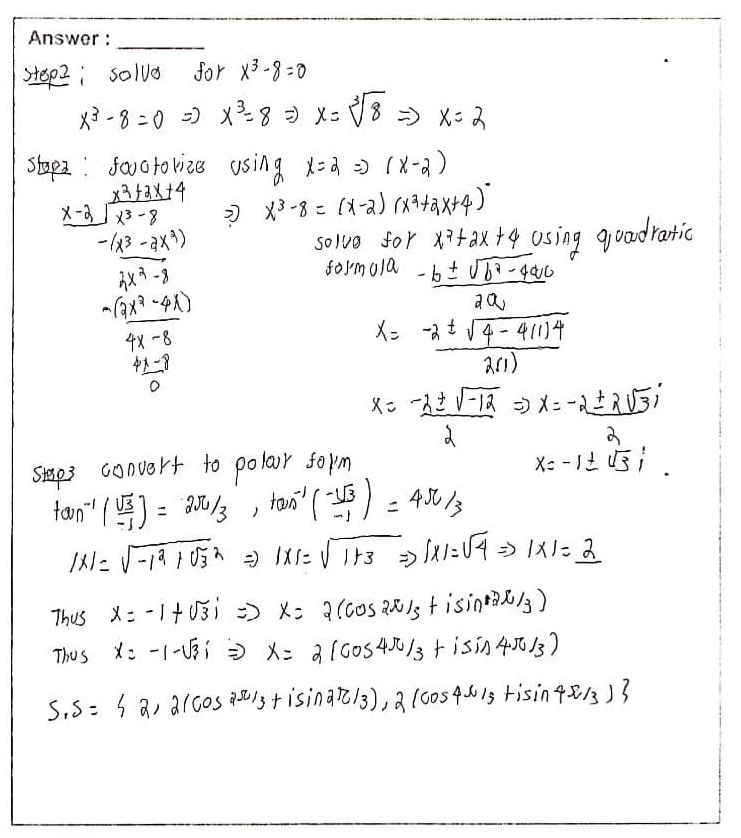 Answer : ________
Step2 ; solve for x³-8=0
x³-8=0 ⇒ x³=8 ⇒ x=∛8 ⇒ x=2
Step2 : factorize using x=2 ⇒ (x-2)
x²+2x+4
x-2 √x³-8 ⇒ x³-8 = (x-2)(x²+2x+4)
-(x³-2x²)
2x²-8
-(2x²-4x)
4x-8
4x-8
0
solve for x²+2x+4 using quadratic
formula (-b±√b²-4ac)/2a
x= (-2±√4-4(1)4)/2(1)
x= (-2±√-12)/2 ⇒ x=(-2±2√3i)/2
x=-1±√3i.
Step3 convert to polar form
tan⁻¹(√3/-1) = 2π/3 , tan⁻¹(-√3/-1) = 4π/3
|x|=√-1²+√3² ⇒ |x|=√1+3 ⇒ |x|=√4 ⇒ |x|=2
Thus x=-1+√3i ⇒ x= 2(cos2π/3+isin2π/3)
Thus x=-1-√3i ⇒ x= 2(cos4π/3+isin4π/3)
S.S= {2, 2(cos2π/3+isin2π/3), 2(cos4π/3+isin4π/3)}